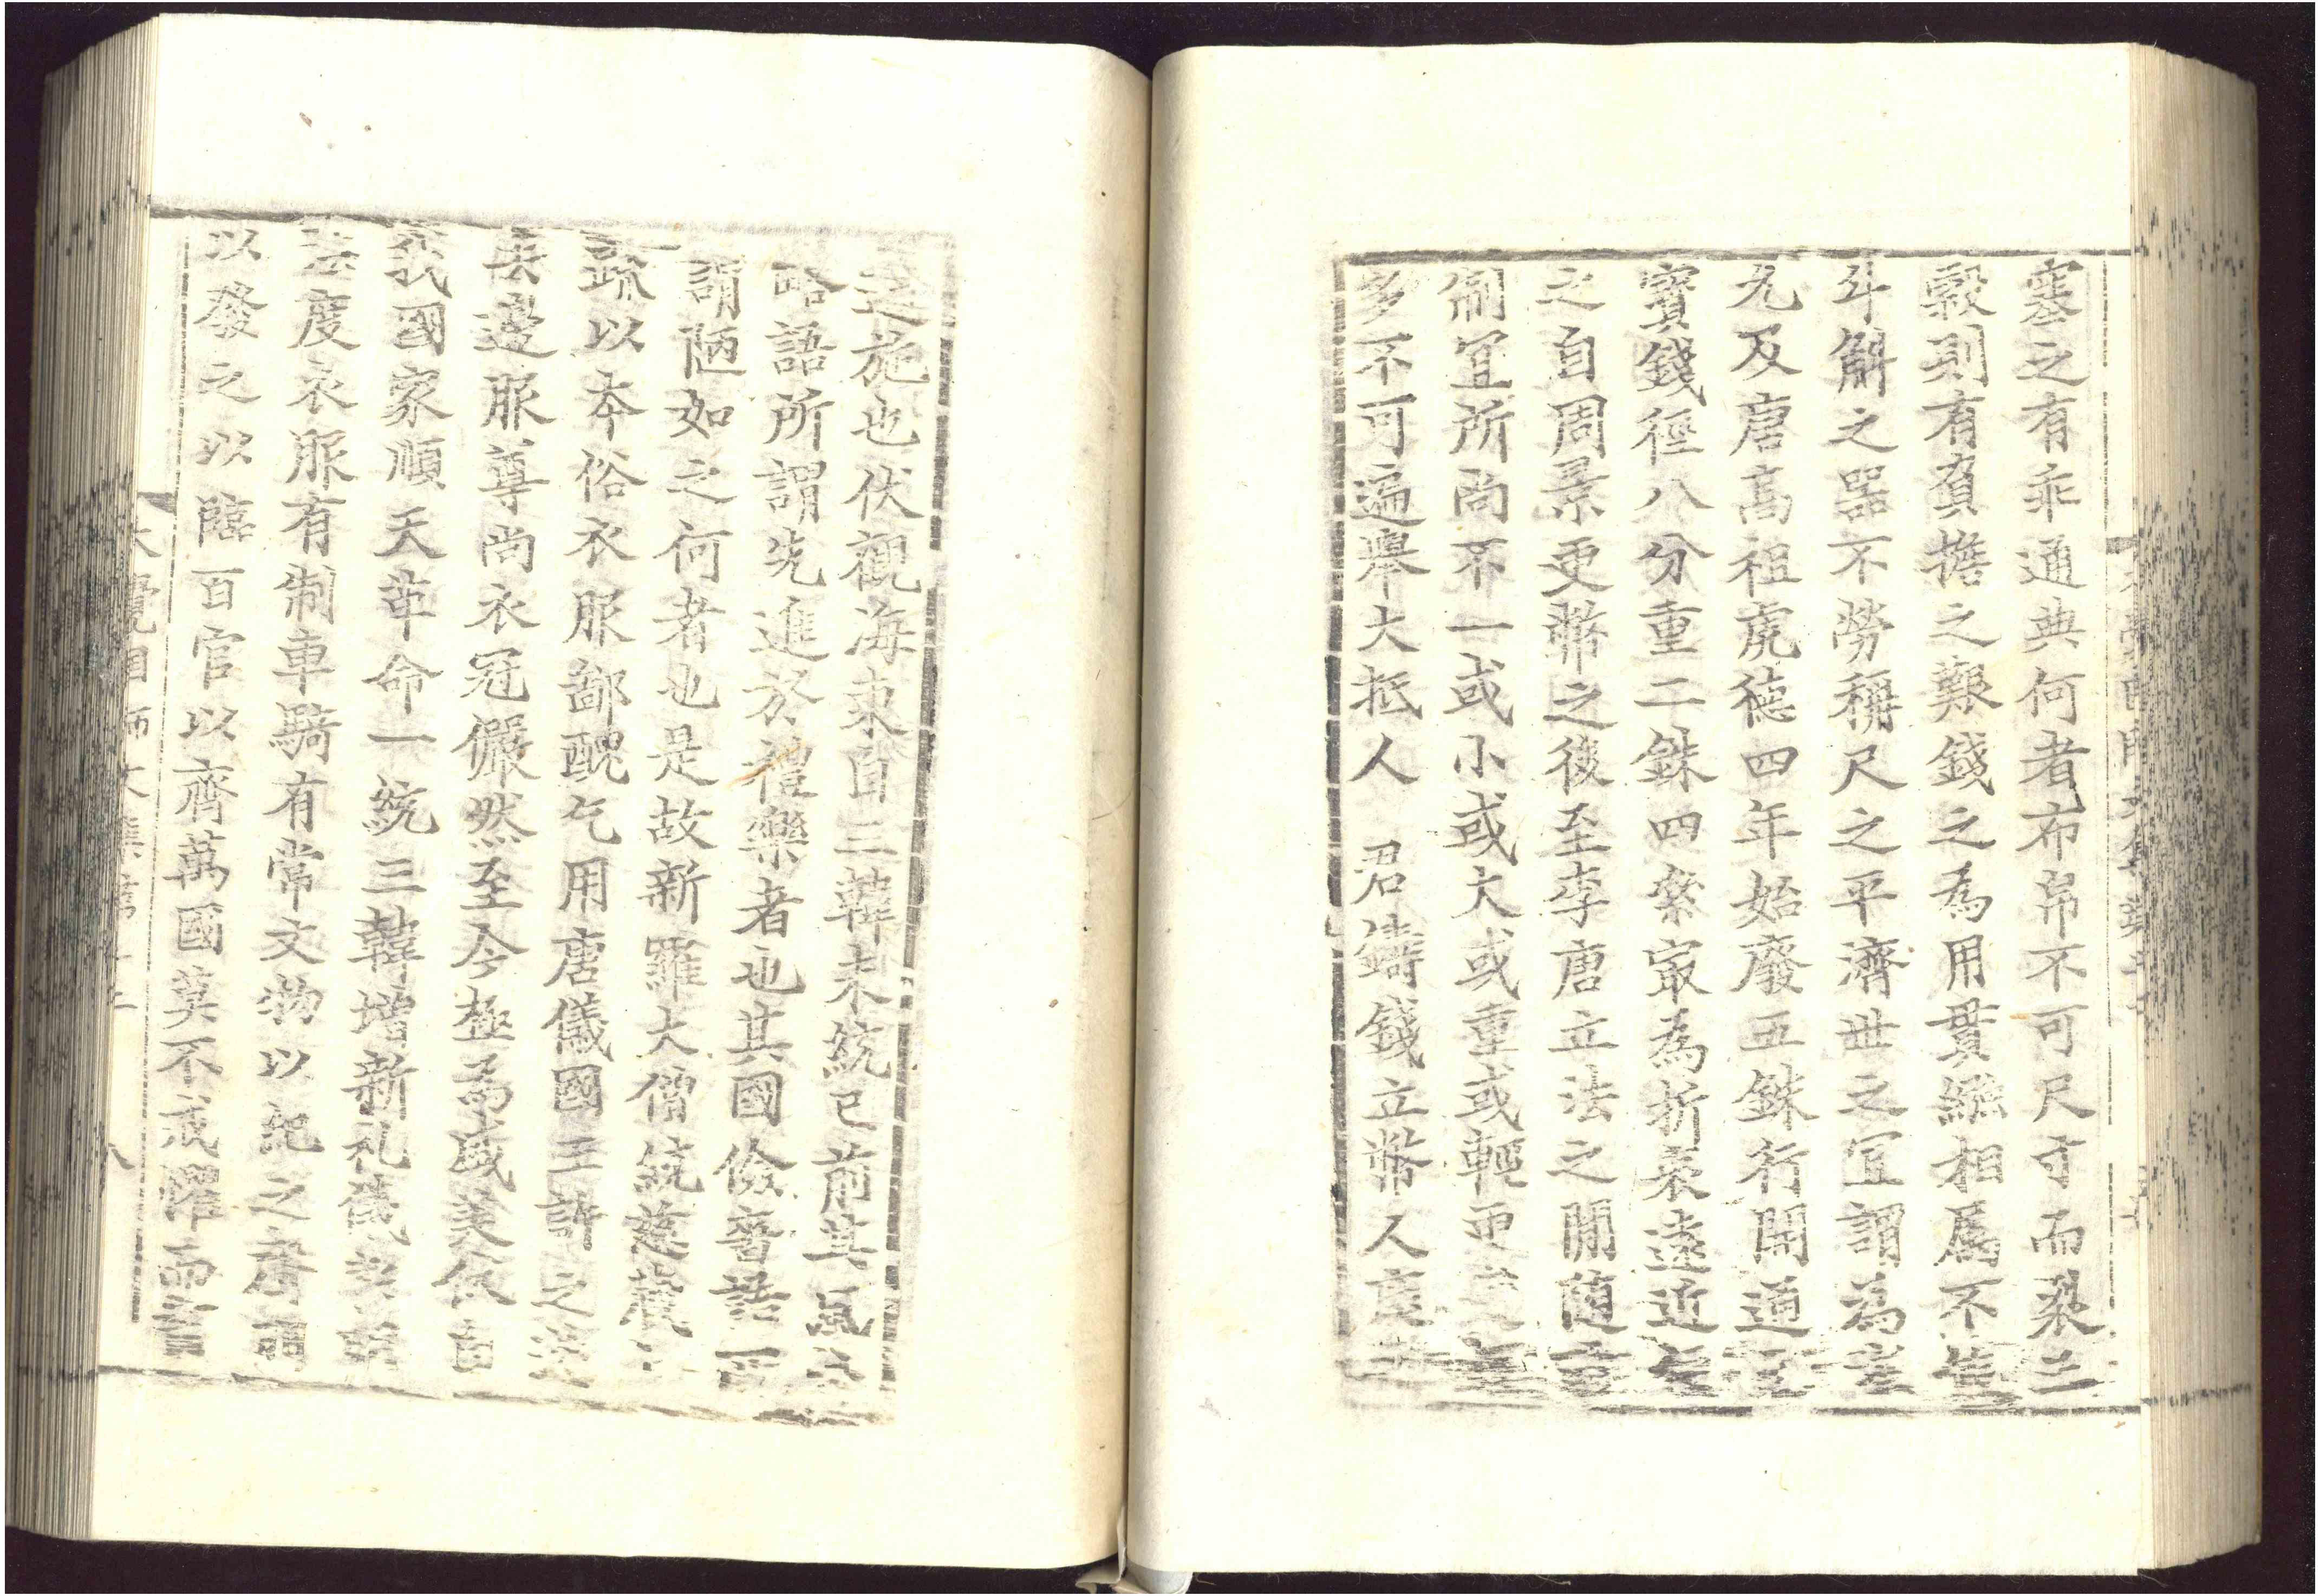 塞之有乖通典何者布帛不可尺寸而裂之
穀則有負擔之艱錢之為用貫繦相屬不
斗斛之器不勞稱尺之平濟世之宜謂為
九及唐高祖虎德四年始廢五銖行開通
寶錢徑八分重二銖四絫㝡為折衷遠近
之自周景更幣之後至李唐立法之開
制宜所尚不一或小或大或重或輕
多不可遍舉大抵人 君鑄錢立幣人
施也伏觀海東自三韓未統已前其風
略語所謂先進於禮樂者也其國儉嗇語
謂陋如之何者也是故新羅大僧䟽慈藏
䟽以夲俗衣服鄙醜乞用唐儀國王許之
去邊服尊尚衣冠儼然至今極為盛美
我國家順天革命一統三韓增新礼儀
法度衣服有制車騎有常文物以紀之聲明
以發之以臨百官以齊萬國莫不戒懼而
大覺國師文集